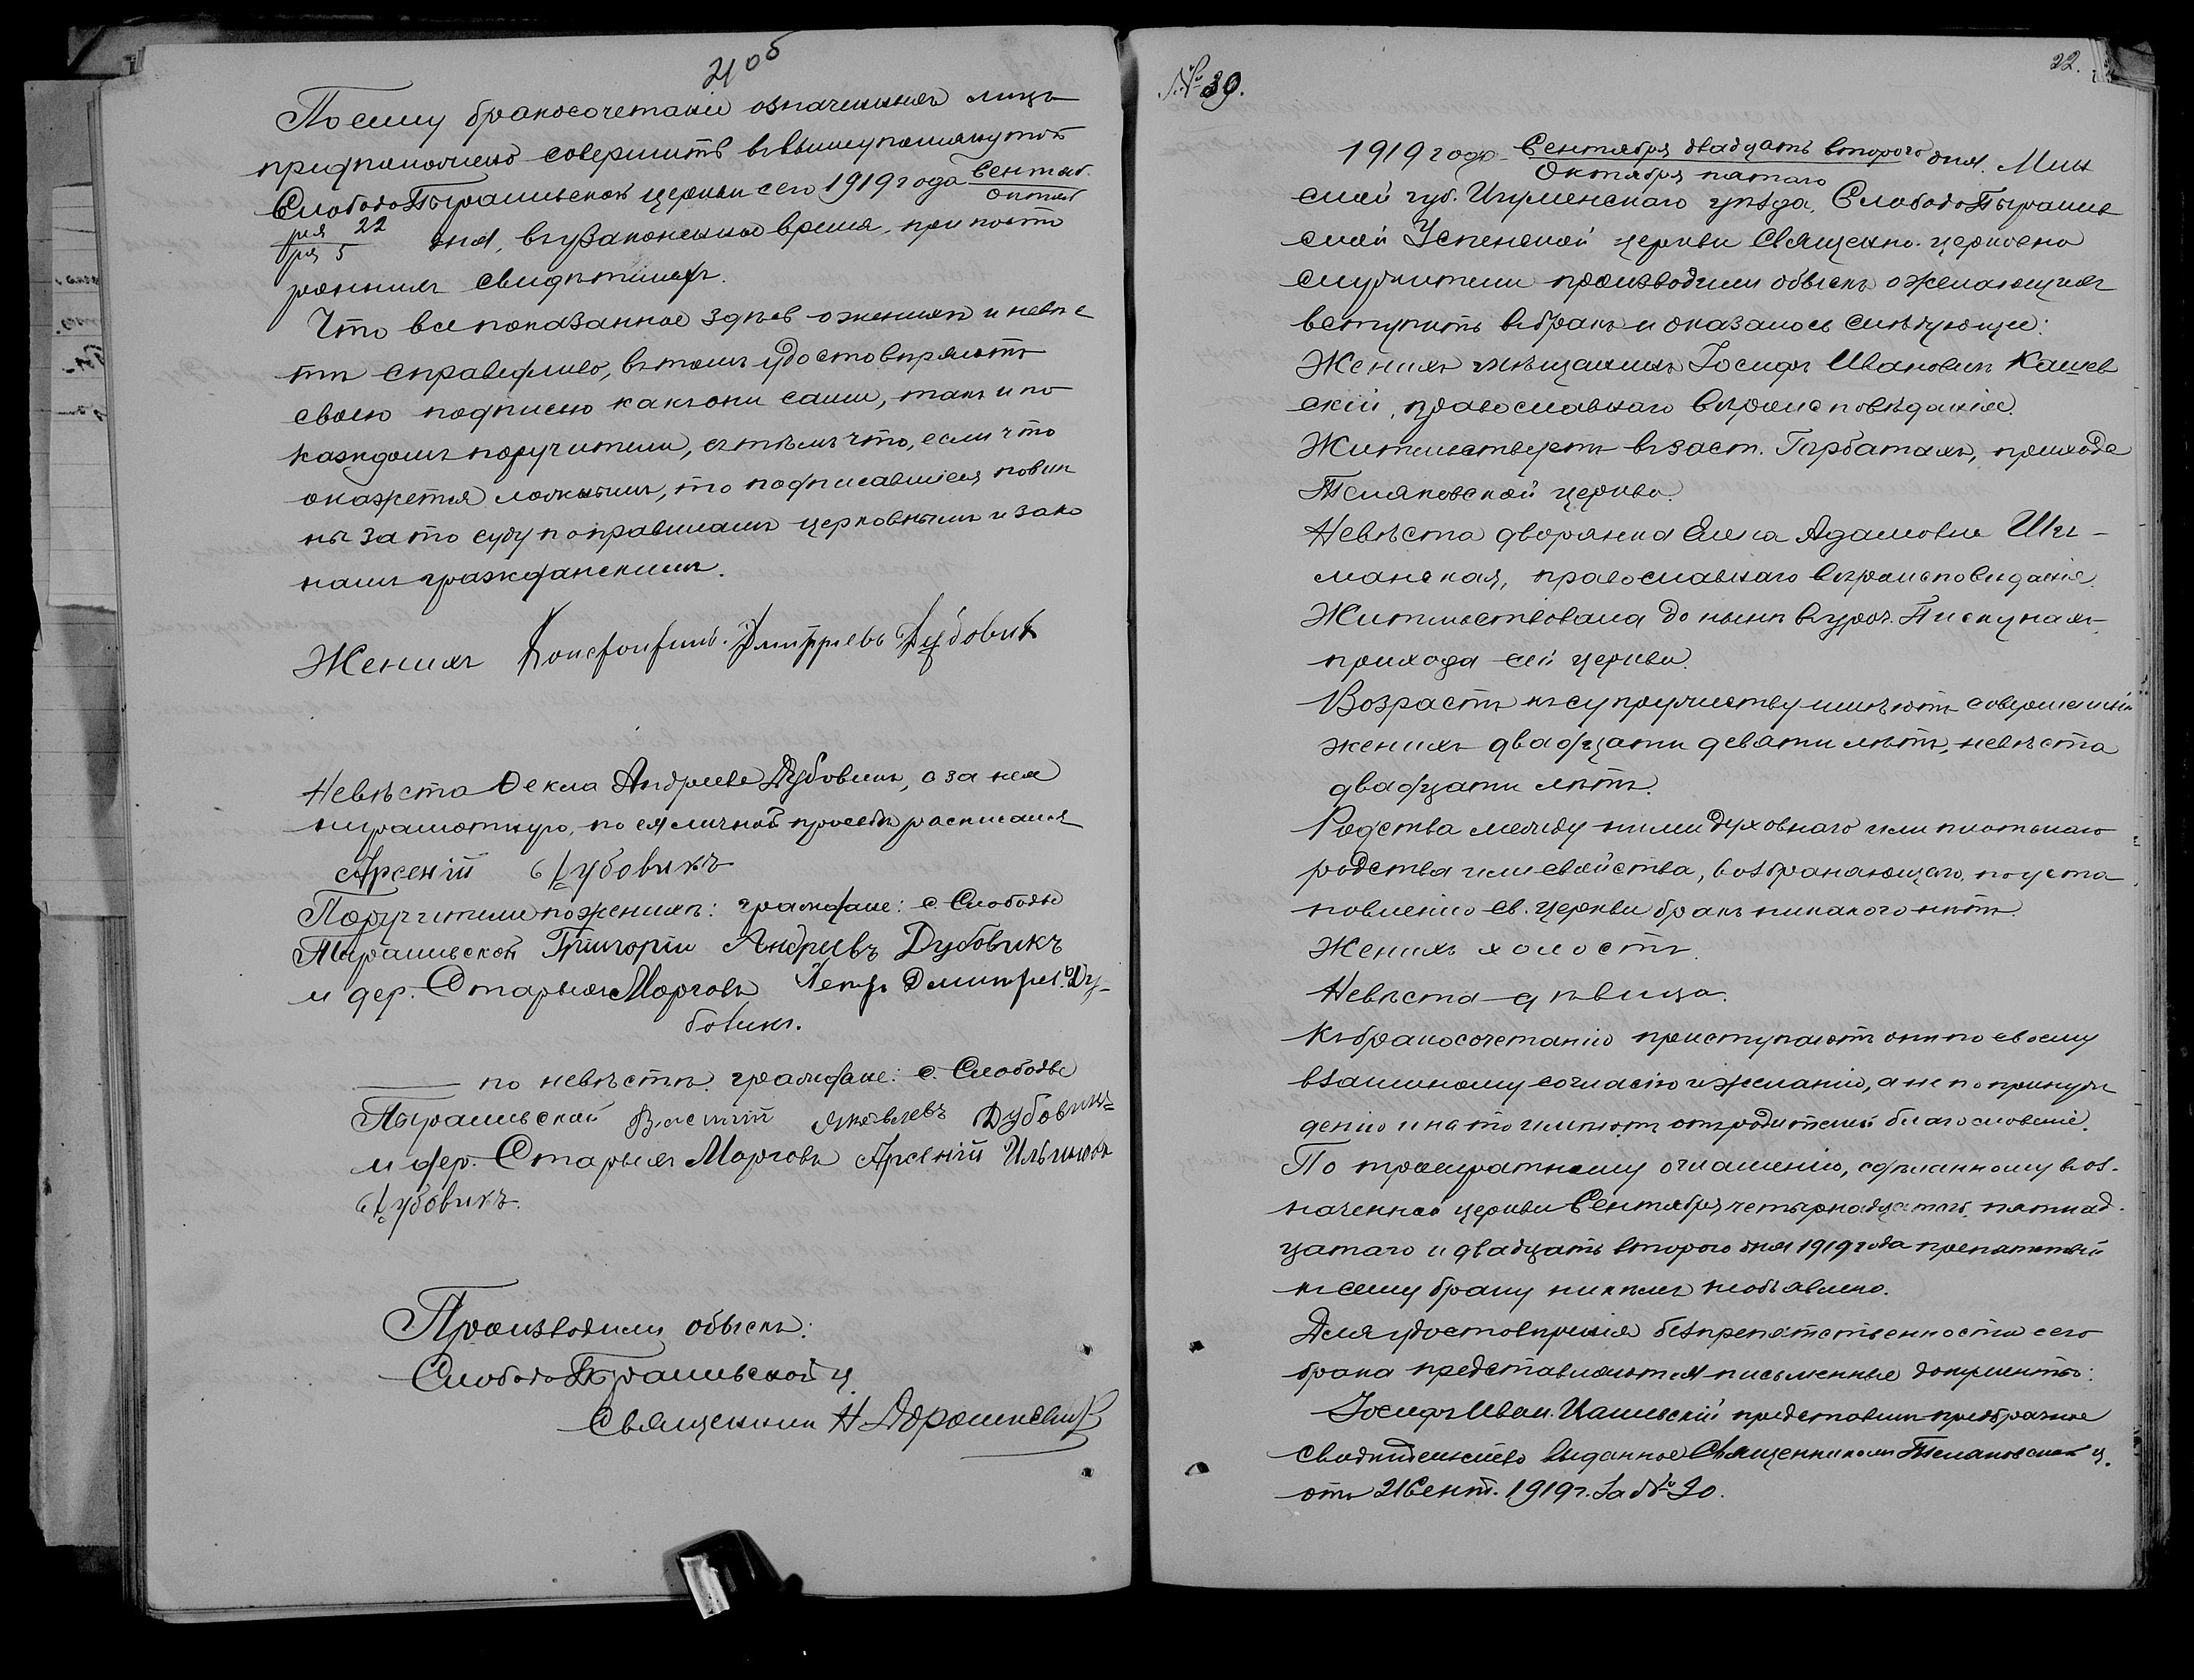 21об
Посему бракосочетаніе означенныхъ лицъ
предположено совершить въ вышеупомянутой
Слободо Пырашевской церкви сего 1919 года Сентяб-
Октяб
ря 22
ря 5 дня, въ узаконенное время, при посто
роннихъ свидѣтеляхъ.
Что все показанное здѣсь о женихѣ и невѣс
тѣ справедливо, въ томъ удостовѣряютъ
своею подписью какъ они сами, такъ и по
каждомъ поручители, съ тѣмъ что, если что
окажется ложнымъ, то подписавшіеся повин
ны за то суду по правиламъ церковнымъ и зако
намъ гражданскимъ.
Женихъ Константинъ Дмитріевъ Дубовикъ
Невѣста Ѳекла Андреева Дубовикъ, а за нея
неграмотную, по ея личной просьбѣ расписался
Арсеній Дубовикъ
Поручители по женихѣ: граждане: с. Слободы
Пырашевской Григорій Андреевъ Дубовикъ
и дер. Старыхъ Морговъ Петръ Дмитріевъ Ду-
бовикъ.
по невѣстѣ граждане: с. Слободы
Пырашевской Василій Яковлевъ Дубовикъ
и дер. Старыхъ Морговъ Арсеній Ильиновъ
Дубовикъ.
Производили обыскъ:
Слободо Пырашевской ц.
Священникъ Н. Дорошкевичъ
22.
№ 39.
1919 года Сентября двадцать второго дня. Мин
Октября пятаго
ской губ. Игуменскаго уѣзда, Слободо Пырашев
ской Успенской церкви Священно-церковно
служители производили обыскъ о желающихъ
вступить въ бракъ и оказалось слѣдующее:
Женихъ мѣщанинъ Іосифъ Ивановичъ Кашев
скій, православнаго вѣроисповѣданія.
Жительствуетъ въ заст. Гарбатахъ, прихода
Теляковской церкви.
Невѣста дворянка Елена Адамовна Ши-
манская, православнаго вѣроисповѣданія.
Жительствовала до нынѣ въ уроч. Пискунахъ
прихода сей церкви.
Возрастъ къ супружеству имѣютъ совершенный
женихъ двадцати девяти лѣтъ, невѣста
двадцати лѣтъ.
Родства между ними духовнаго или плотскаго
родства или свойства, возбраняющаго по уста
новленію св. церкви бракъ никакого нѣтъ.
Женихъ холостъ.
Невѣста дѣвица.
Къ бракосочетанію приступаютъ они по своему
взаимному согласію и желанію, а не по принуж
денію и на то имѣютъ отъ родителей благословеніе.
По троекратному оглашенію, сдѣланному въ оз-
наченной церкви Сентября четырнадцатаго, пятнад-
цатаго и двадцать второго дня 1919 года препятствій
къ сему браку никѣмъ не объявлено.
Для удостовѣренія безпрепятственности сего
брака представляются письменные документы:
Іосифъ Иван. Кашевскій представилъ предбрачное
свидѣтельство выданное Священникомъ Теляковской ц.
отъ 21 Сент. 1919 г. за № 20.